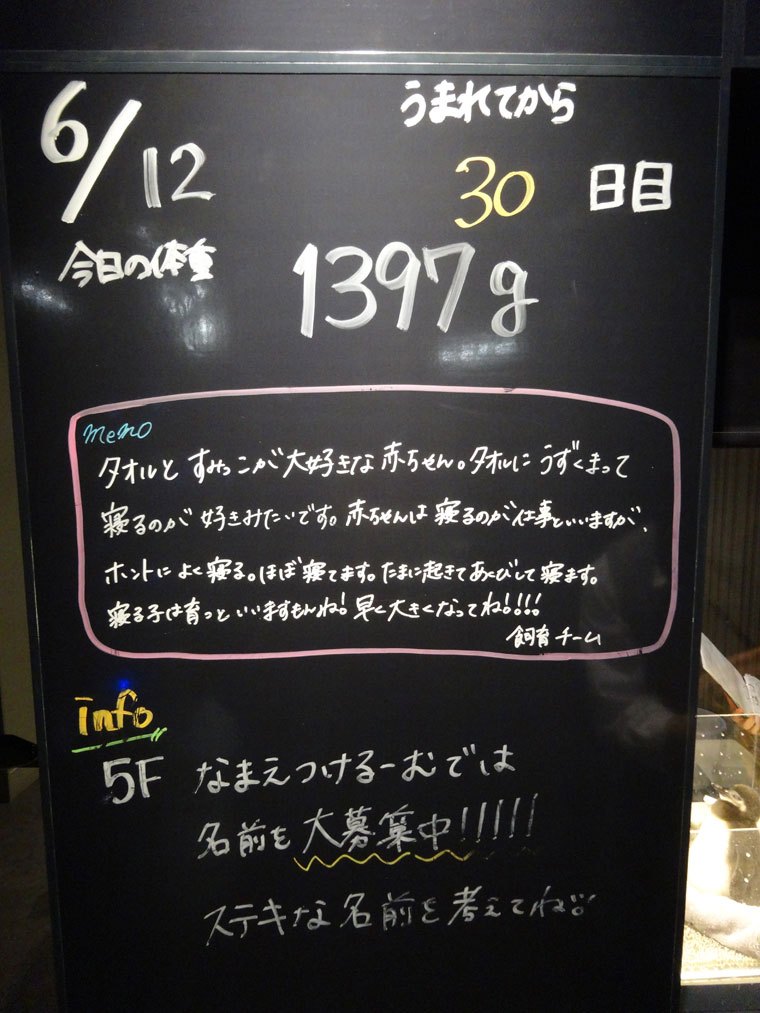 6/12
うまれてから
30日目
今日の体重
1397g
memo
タオルと すみっこが大好きな赤ちゃん。タオルに うずくまって
寝るのが 好きみたいです。赤ちゃんは 寝るのが仕事といいますが、
ホントによく寝る。ほぼ寝てます。たまに起きてあくびして寝ます。
寝る子は育つといいますもんね!早く大きくなってね!!!!
飼育チーム
info
5F なまえつけるーむでは
名前を 大募集中!!!!!
ステキな名前を考えてね